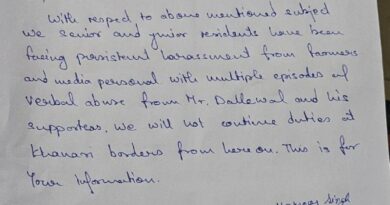 With respect to above mentioned subject
we senior and junior residents have been
facing persistent harassment from farmers
and media personal with multiple episodes of
verbal abuse from Mr. Dallewal and his
supporters. We will not continue duties at
Khanari borders from here on. This is for
Your Information.
Singh